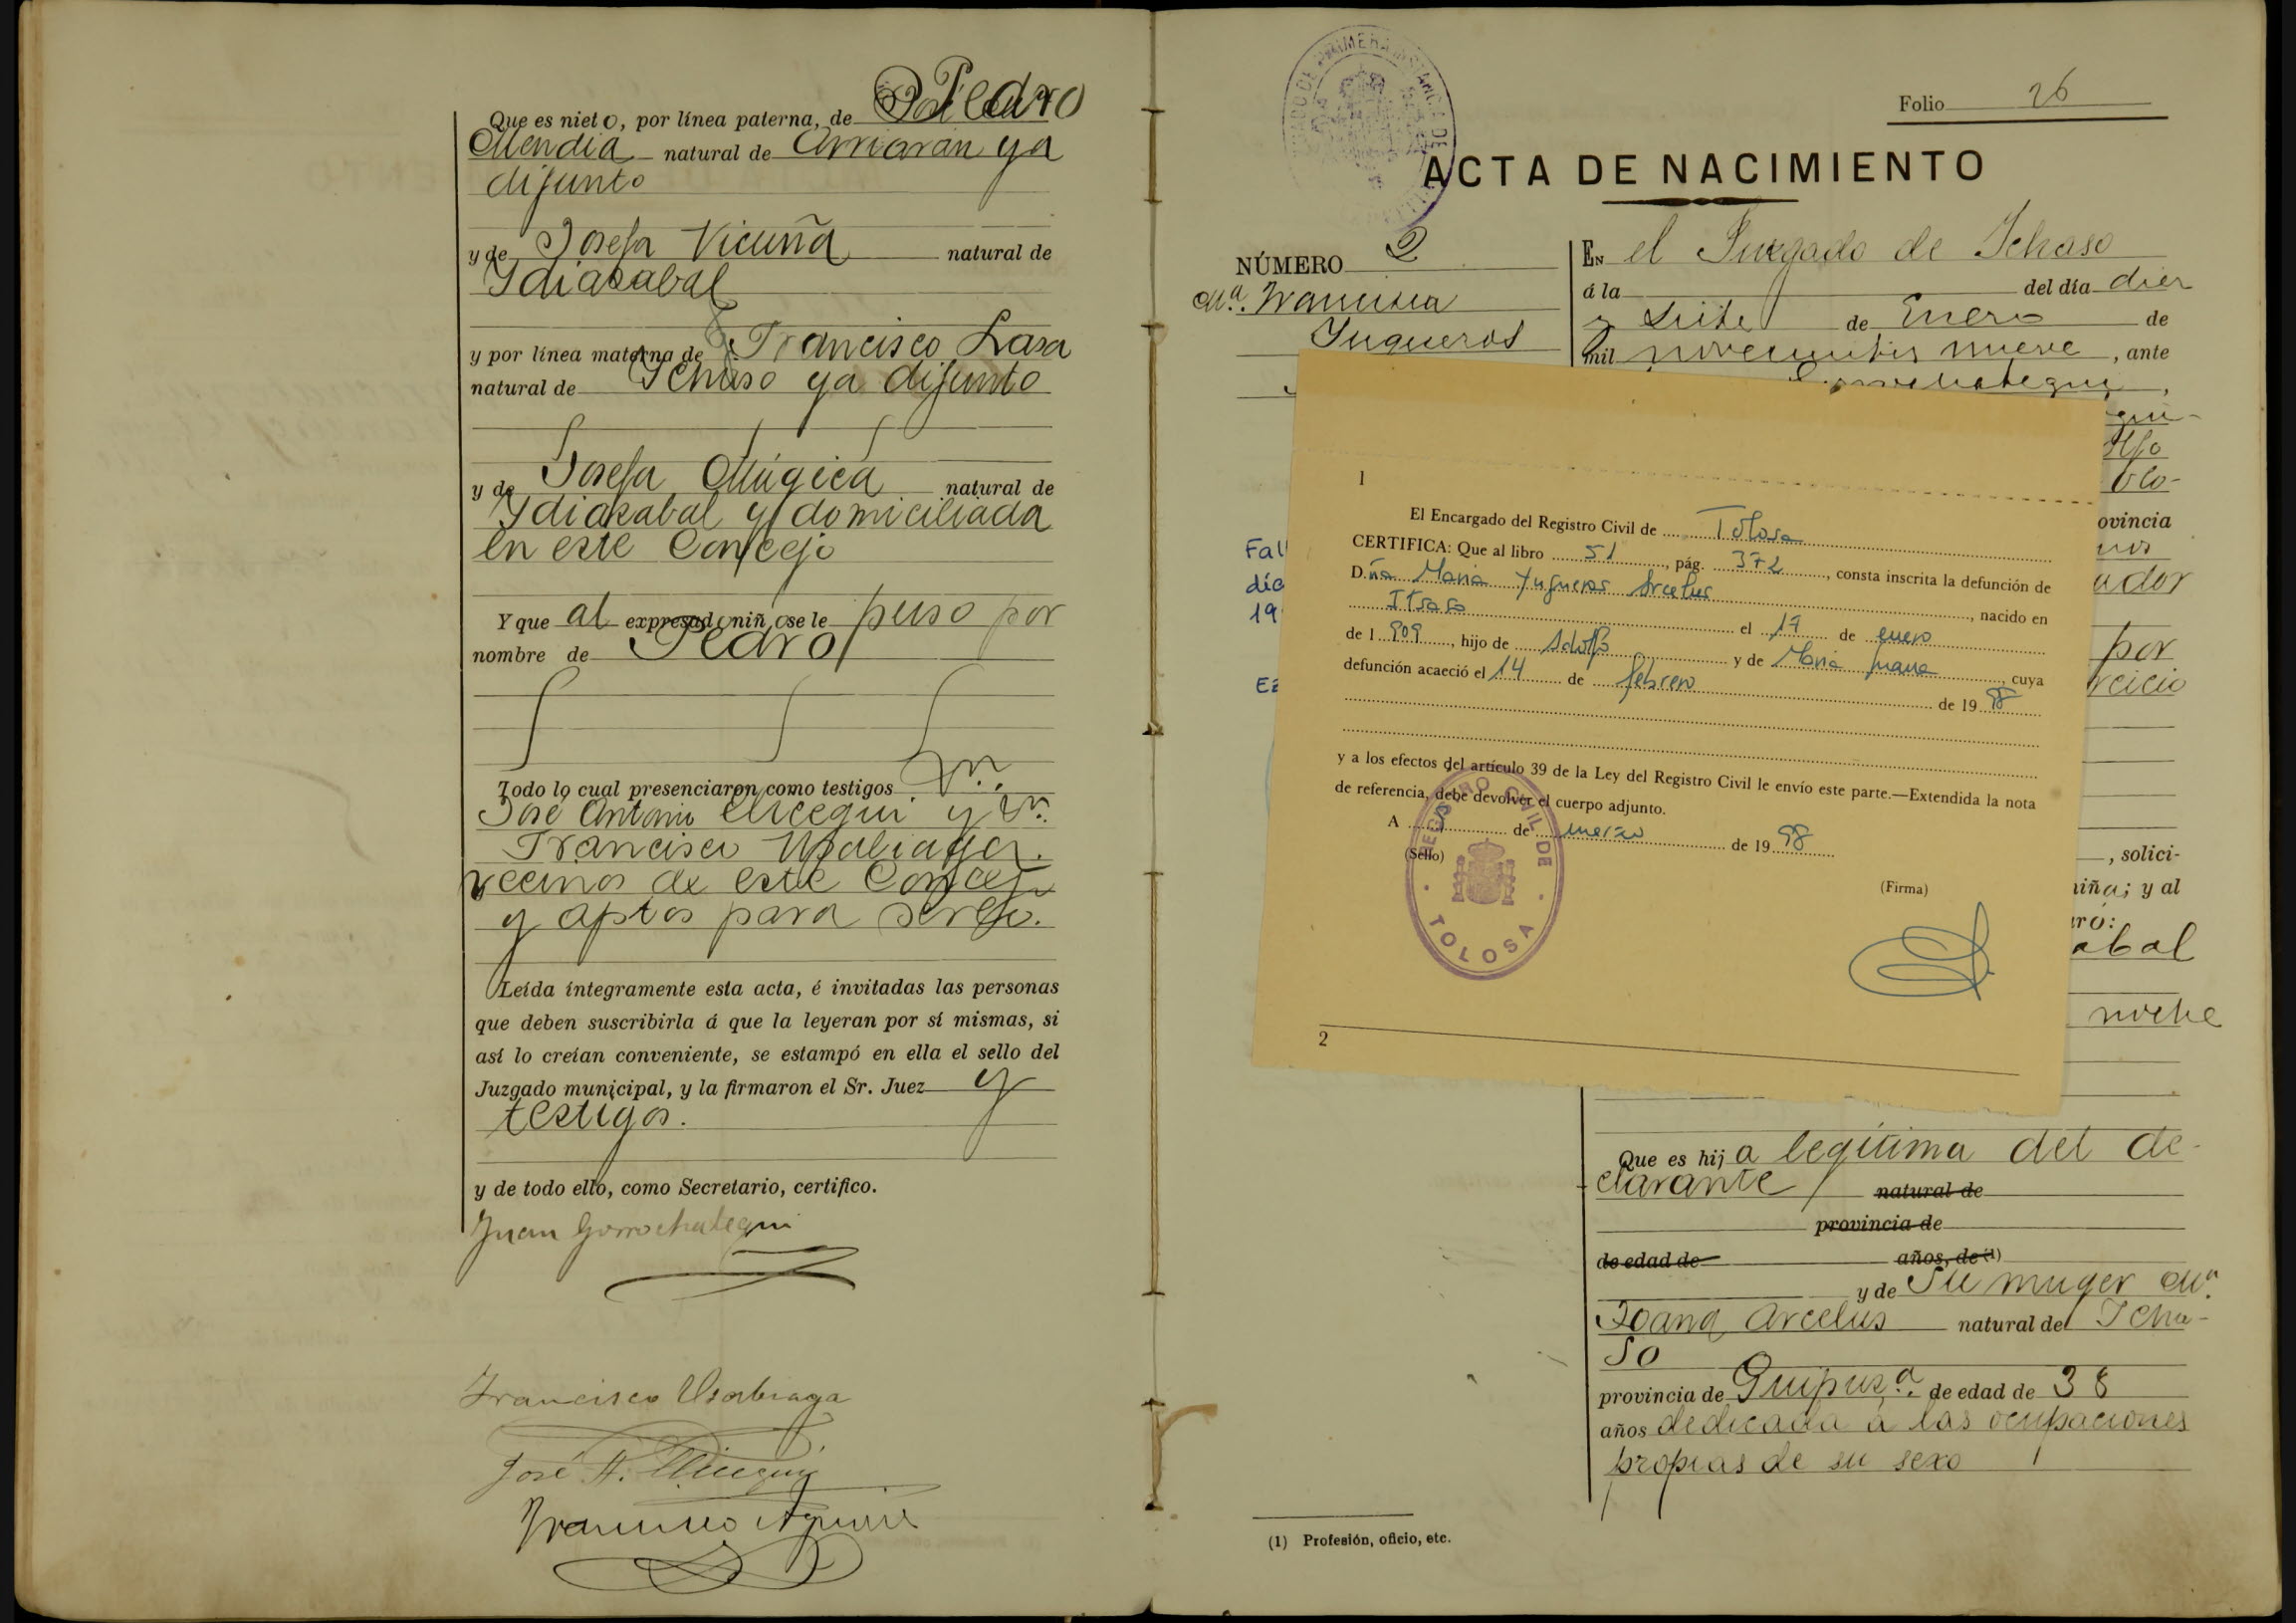 Que es nieto, por línea paterna, de Pedro
Mendia natural de Arriarán ya
difunto
y de Josefa Vicuña natural de
Ydiazabal
y por línea materna de Francisco Lasa
natural de Ychaso ya difunto
y de Josefa Múgica natural de
Ydiazabal y domiciliada
en este Concejo
Y que al expresado niño se le puso por
nombre de Pedro
Todo lo cual presenciaron como testigos Dn.
José Antonio y Dn.
Francisco
vecinos de este Concejo
y aptos para serlo.
Leída íntegramente esta acta, é invitadas las personas
que deben suscribirla á que la leyeran por sí mismas, si
así lo creían conveniente, se estampó en ella el sello del
Juzgado municipal, y la firmaron el Sr. Juez y
testigos.
y de todo ello, como Secretario, certifico.
Juan Gorrochategui
Francisco Usabiaga
José A.
Francisco Aguirre
Folio 26
ACTA DE NACIMIENTO
NÚMERO 2
Mª. Francisca
Yugueros
EN el Juzgado de Ychaso
á la del día diez
y siete de Enero de
mil novecientos nueve, ante
Gorrochategui,
ovincia
ador
por
rcicio
, solici-
niña; y al
aró:
abal
noche
Fal
dic
19
1
El Encargado del Registro Civil de Tolosa
CERTIFICA: Que al libro 51, pág. 372, consta inscrita la defunción de
D.ña Maria Yugueros Arcelus, nacido en
Itsaso el 17 de enero
de 1 909, hijo de Adolfo y de Maria Juana, cuya
defunción acaeció el 14 de febrero de 19 98
y a los efectos del artículo 39 de la Ley del Registro Civil le envío este parte.—Extendida la nota
de referencia, debe devolver el cuerpo adjunto.
A de marzo de 19 98
(Sello)
(Firma)
REGISTRO CIVIL DE
TOLOSA
2
Que es hija legítima del de-
clarante natural de
provincia de
de edad de años, de (1)
y de Su muger Mª.
Joana Arcelus natural de Ycha-
so
provincia de Guipuzª. de edad de 38
años dedicada á las ocupaciones
propias de su sexo
(1) Profesión, oficio, etc.